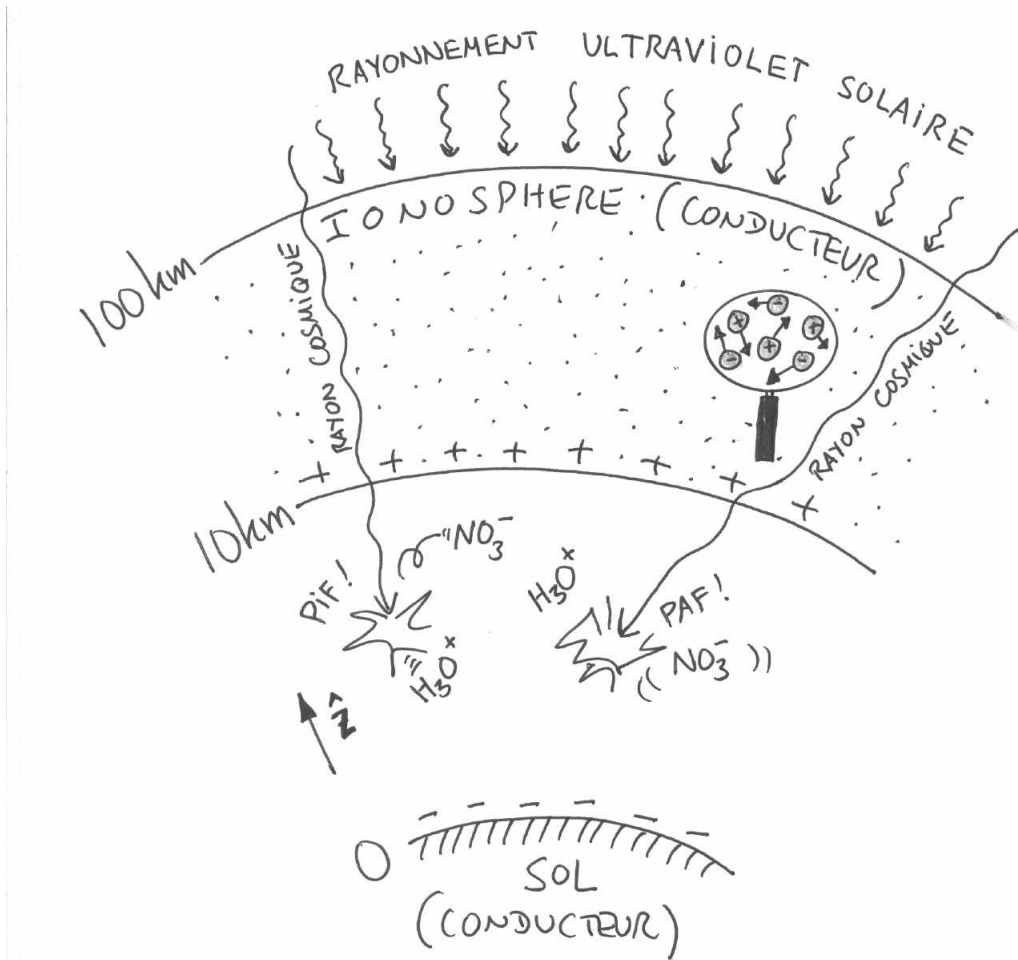 RAYONNEMENT ULTRAVIOLET SOLAIRE
IONOSPHERE (CONDUCTEUR)
100km
RAYON COSMIQUE
RAYON COSMIQUE
+ - + + - -
+ + + + + + + +
10km
NO₃⁻
PIF!
H₃O⁺
H₃O⁺
PAF!
NO₃⁻
ẑ
- - - - - -
0
SOL
(CONDUCTEUR)